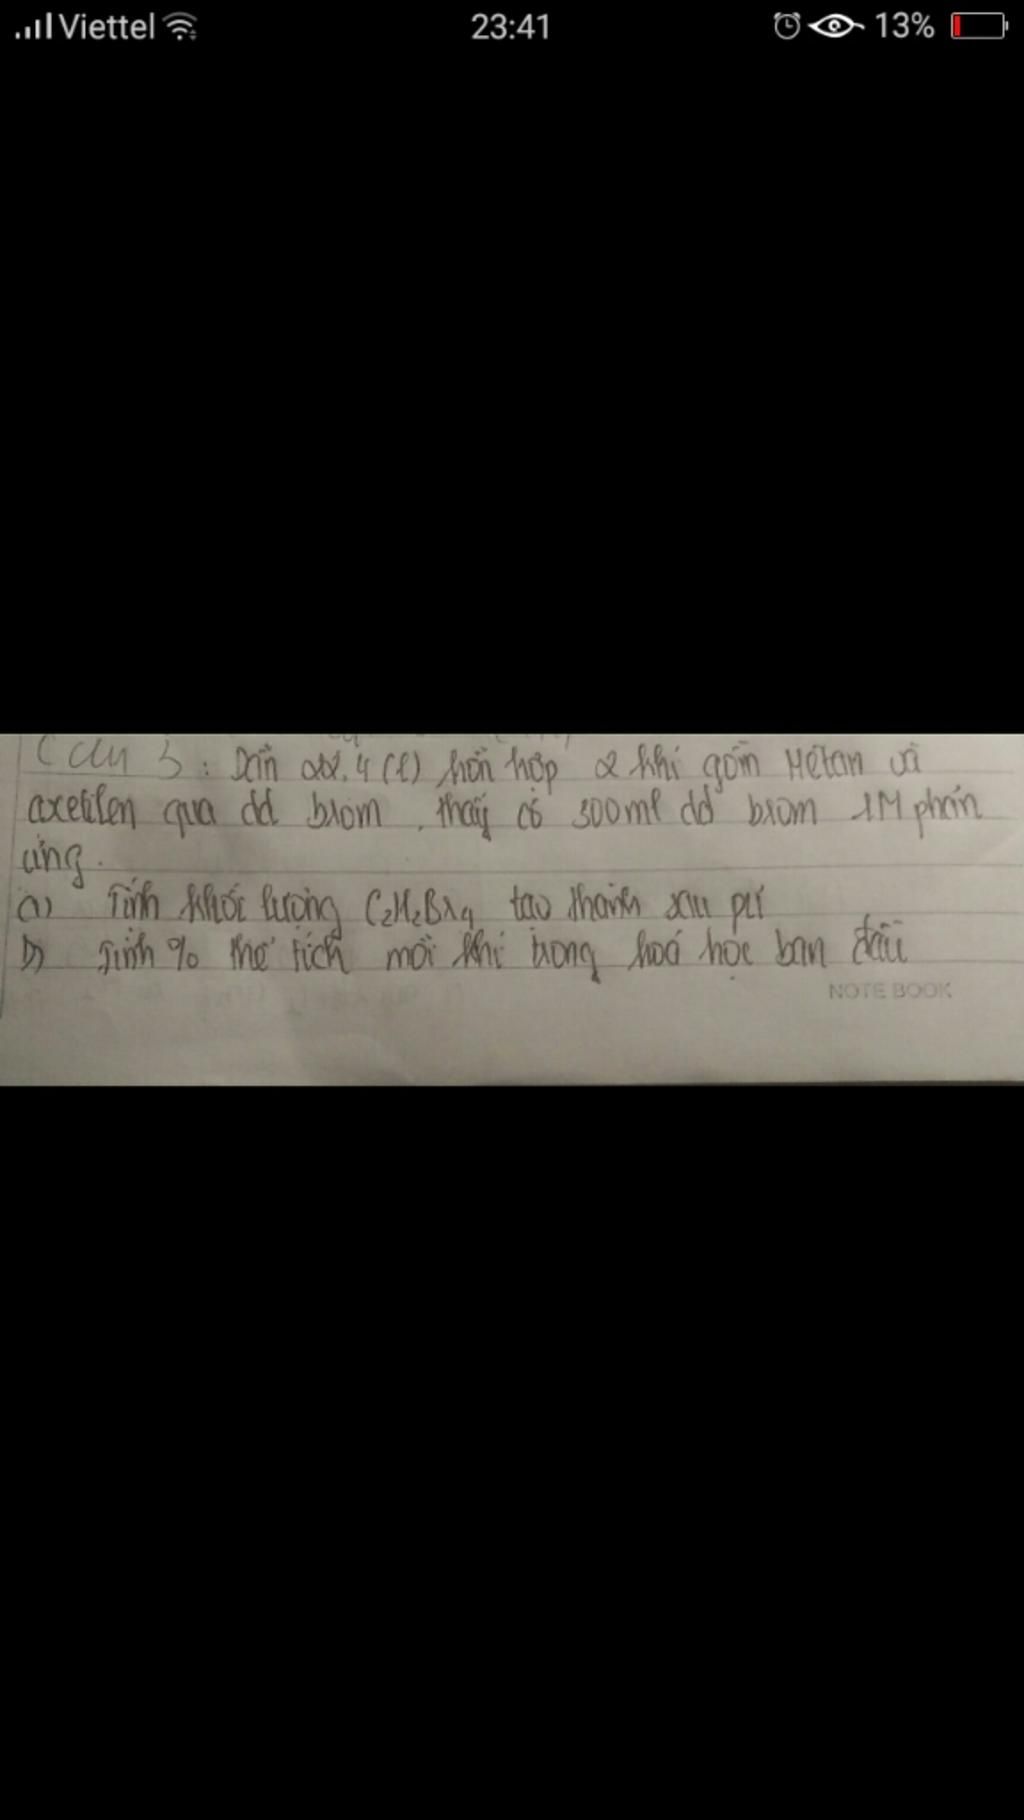 Viettel 23:41 13%
Câu 3: Dẫn 22.4 (l) hỗn hợp 2 khí gồm Mêtan và
axetilen qua dd brom, thấy có 300ml dd brom 1M phản
ứng.
a) Tính khối lượng C2H2Br4 tạo thành sau pứ
b) Tính % thể tích mỗi khí trong hoá học ban đầu
NOTE BOOK